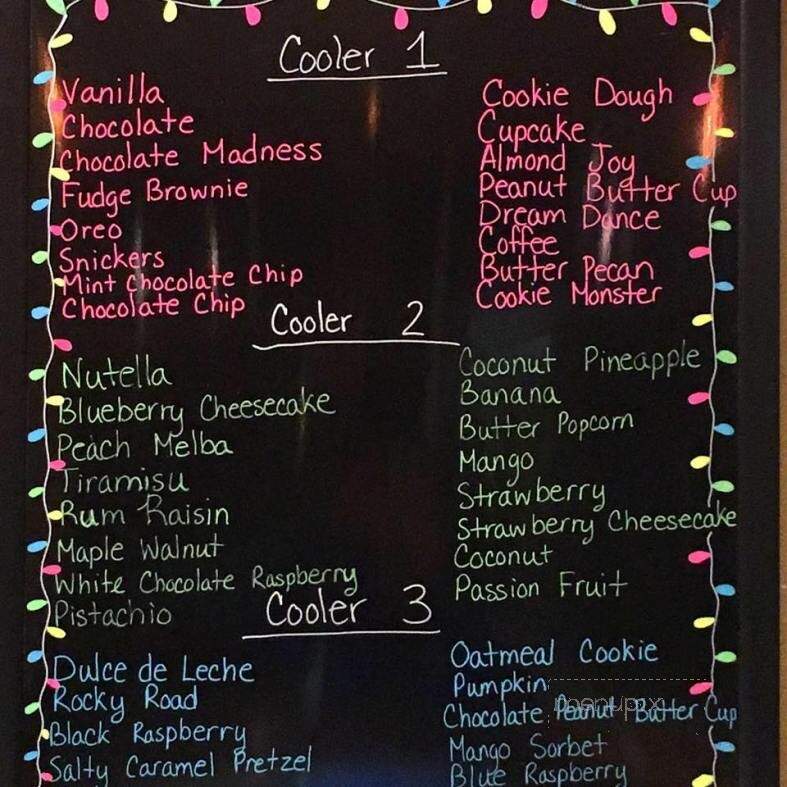 Cooler 1
Vanilla
Chocolate
Chocolate Madness
Fudge Brownie
Oreo
Snickers
Mint Chocolate Chip
Chocolate Chip
Cookie Dough
Cupcake
Almond Joy
Peanut Butter Cup
Dream Dance
Coffee
Butter Pecan
Cookie Monster
Cooler 2
Nutella
Blueberry Cheesecake
Peach Melba
Tiramisu
Rum Raisin
Maple Walnut
White Chocolate Raspberry
Pistachio
Coconut Pineapple
Banana
Butter Popcorn
Mango
Strawberry
Strawberry Cheesecake
Coconut
Passion Fruit
Cooler 3
Dulce de Leche
Rocky Road
Black Raspberry
Salty Caramel Pretzel
Oatmeal Cookie
Pumpkin
Chocolate Peanut Butter Cup
Mango Sorbet
Blue Raspberry